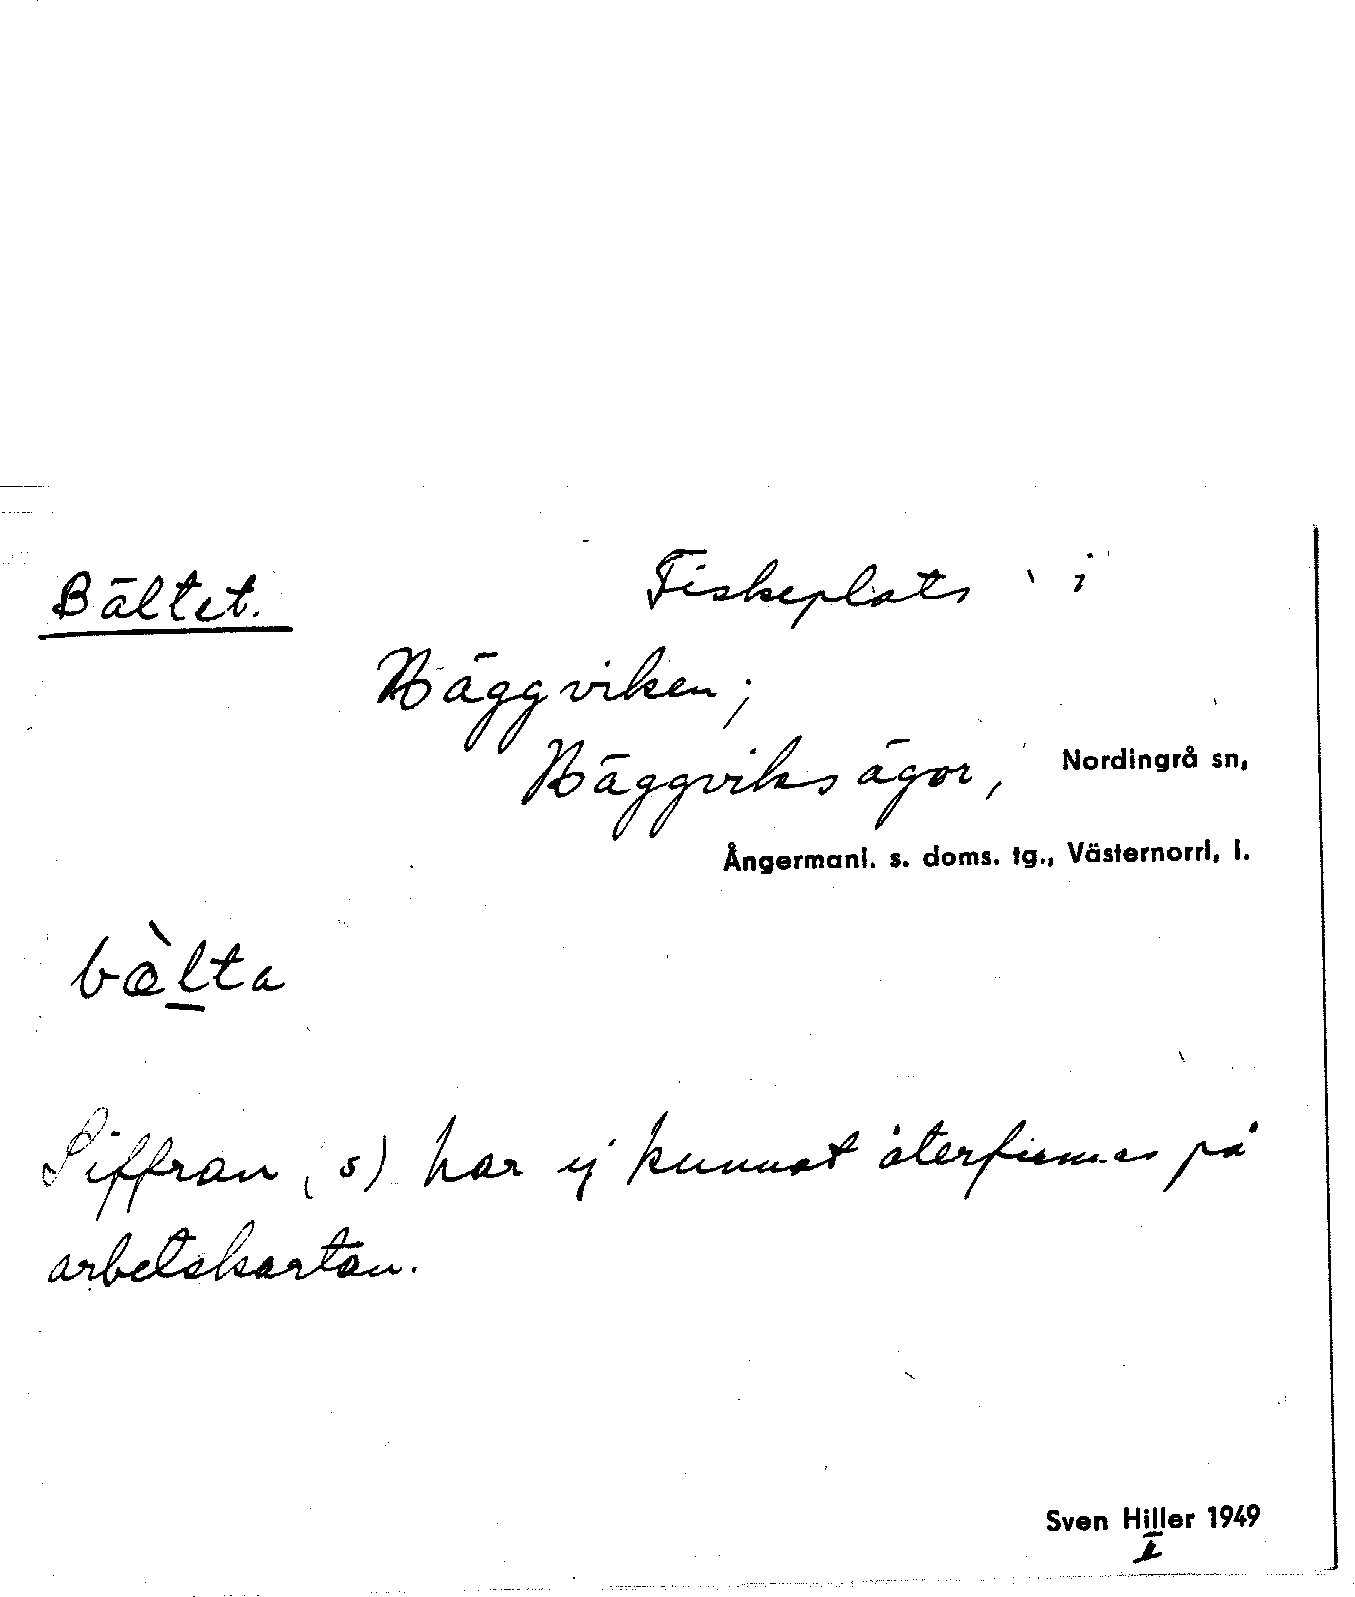 Bältet. Fiskeplats i
Häggviken;
Häggviks ägor, Nordingrå sn,
Ångermanl. s. doms. tg., Västernorrl. l.
bæ̀lta
Siffran (s) har ej kunnat återfinnas på
arbetskartan.
Sven Hiller 1949
I